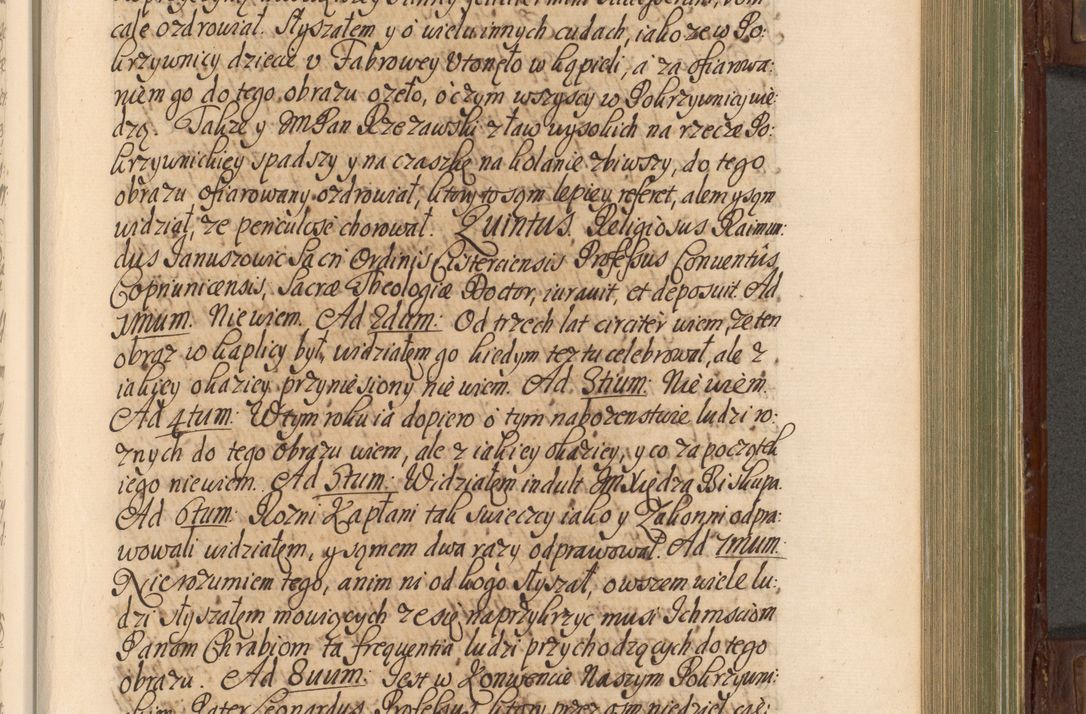 cale ozdrowiał. Słyszałem y o wielu innych cudach, iako ze w Po:
krzywnicy dziecie v Fabrowey Vtonęło w kąpieli, a za ofiarowa:
niem go do tego obrazu ozeło, o czym wszyscy w Pokrzywnicy wie:
dzą. Także y JMPan Rzezawski z ław wysokich na rzecze Po:
krzywnickiey spadszy y na czaszkę na kolanie zbiwszy, do tego
obrazu ofiarowany ozdrowiał, ktory to sąm lepiey referet, alem y sąm
widział, ze periculose chorował. Quintus. Religiosus Raimun:
dus Januszowic Sacri Ordinis Cisterciensis Professus Conventûs
Copriunicensis, Sacræ Theologiæ Doctor, iurauit, et deposuit. Ad
1mum. Nie wiem. Ad 2dum: Od trzech lat circiter wiem, ze ten
obraz w kaplicy był, widziałem go kiedym tez tu celebrował, ale z
iakiey okaziey przyniesiony nie wiem. Ad 3tium: Nie wiem.
Ad 4tum: W tym roku ia dopiero o tym nabozenstwie ludzi ro:
znych do tego obrazu wiem, ale z iakiey okaziey, y co za początek
iego nie wiem. Ad 5tum: Widziałem indult JMXiędza Biskupa.
Ad 6tum: Rozni Kapłani tak swieccy iako y Zakonni odpra:
wowali widziałem, y sąmem dwa razy odprawował. Ad 7mum:
Nie rozumiem tego, anim ni od kogo słyszał, owszem wiele lu:
dzi słyszałem mowiących ze się naprzykrzyc musi Ichmsciom
Panom Chrabiom ta frequentia ludzi przychodzących do tego
obrazu. Ad 8uum: Jest w Konwencie Naszym Pokrzywni:
Pater Leonardus Professus, ktory przez ośm niedziel